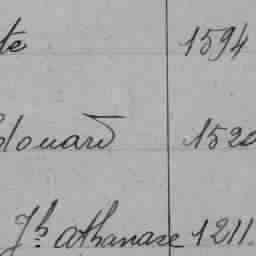 te 1594
Edouard 1520
Jh athanase 1211.